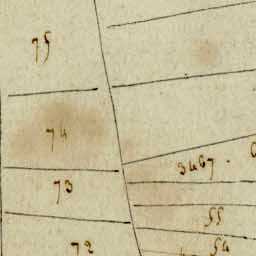 75
74
3467.
73
55
54
72